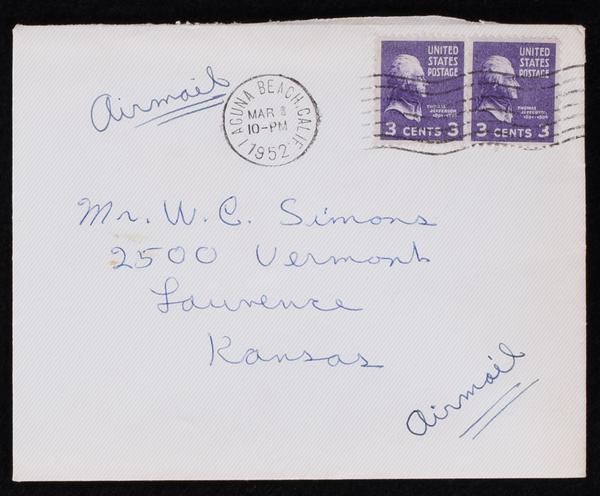 Airmail
LAGUNA BEACH, CALIF.
MAR
10-PM
1952
UNITED
STATES
POSTAGE
THOMAS
JEFFERSON
3 CENTS 3
UNITED
STATES
POSTAGE
THOMAS
JEFFERSON
3 CENTS 3
Mr. W. C. Simons
2500 Vermont
Lawrence
Kansas
Airmail